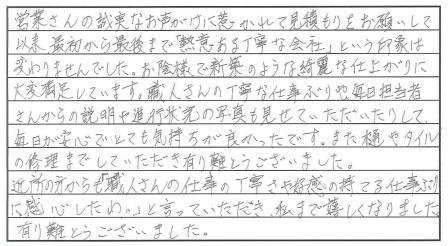 営業さんの誠実なお声がけに惹かれて見積もりをお願いして
以来、最初から最後まで「熱意ある丁寧な会社」という印象は
変わりませんでした。お陰様で新築のような綺麗な仕上がりに
大変満足しています。職人さんの丁寧な仕事ぶりや、毎日担当者
さんからの説明や進行状況の写真も見せていただいたりして、
毎日が安心でとても気持ちが良かったです。また樋やタイル
の修理までしていただき有り難とうございました。
近所の方からも「職人さんの仕事の丁寧さや好感の持てる仕事ぶり
に感心したわ。」と言っていただき、私まで嬉しくなりました。
有り難とうございました。